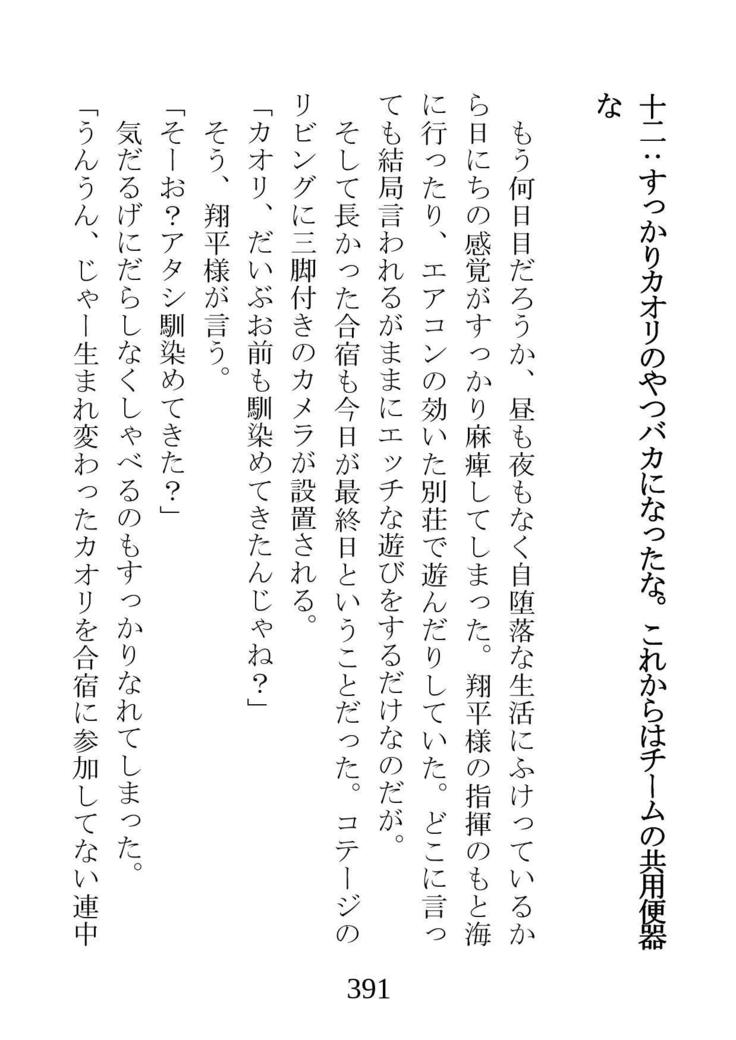 十二：すっかりカオリのやつバカになったな。これからはチームの共用便器
な
もう何日目だろうか、昼も夜もなく自堕落な生活にふけっているか
ら日にちの感覚がすっかり麻痺してしまった。翔平様の指揮のもと海
に行ったり、エアコンの効いた別荘で遊んだりしていた。どこに言っ
ても結局言われるがままにエッチな遊びをするだけなのだが。
そして長かった合宿も今日が最終日ということだった。コテージの
リビングに三脚付きのカメラが設置される。
「カオリ、だいぶお前も馴染めてきたんじゃね？」
そう、翔平様が言う。
「そーお？アタシ馴染めてきた？」
気だるげにだらしなくしゃべるのもすっかりなれてしまった。
「うんうん、じゃー生まれ変わったカオリを合宿に参加してない連中
391